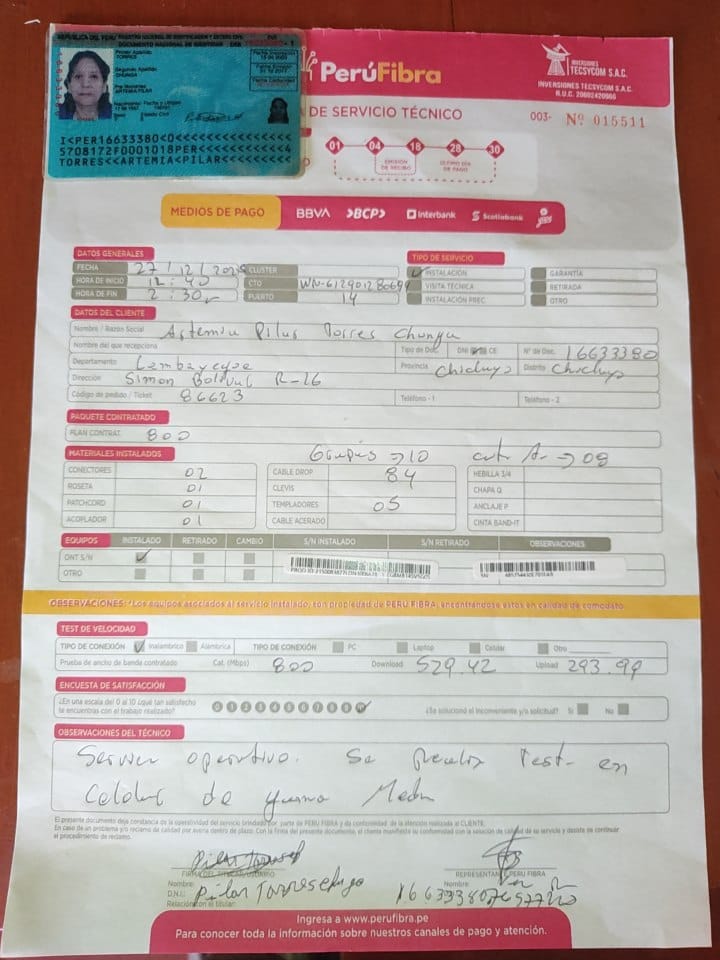 REPUBLICA DEL PERU REGISTRO NACIONAL DE IDENTIFICACION Y ESTADO CIVIL
DOCUMENTO NACIONAL DE IDENTIDAD DNI
Primer Apellido
TORRES
Segundo Apellido
CHUNGA
Pre Nombres
ARTEMIA PILAR
I<PER16633380<0<<<<<<<<<<<<<<<
5708172F0001018PER<<<<<<<<<<<4
TORRES<<ARTEMIA<PILAR<<<<<<<<<
PerúFibra
INVERSIONES TECSYCOM S.A.C.
INVERSIONES TECSYCOM S.A.C.
R.U.C. 20602420666
DE SERVICIO TÉCNICO
003- Nº 015511
01 04 18 28 30
EMISIÓN DE RECIBO
ÚLTIMO DÍA DE PAGO
MEDIOS DE PAGO BBVA >BCP> Interbank Scotiabank yape
DATOS GENERALES TIPO DE SERVICIO
FECHA 27/12/2025 CLUSTER INSTALACIÓN GARANTÍA
HORA DE INICIO 12:40 CTO VISITA TÉCNICA RETIRADA
HORA DE FIN 2:30 PUERTO 14 INSTALACIÓN PREC OTRO
DATOS DEL CLIENTE
Nombre / Razón Social Artemia Pilar Torres Chunga
Nombre del que recepciona Tipo de Doc. DNI CE Nº de Doc. 16633380
Departamento Lambayeque Provincia Chiclayo Distrito Chiclayo
Dirección Simon Bolivar R-26
Código de pedido / Ticket 86623 Teléfono - 1 Teléfono - 2
PAQUETE CONTRATADO
PLAN CONTRAT. 800
MATERIALES INSTALADOS Grapas →10 →09
CONECTORES 02 CABLE DROP 84 HEBILLA 3/4
ROSETA 01 CLEVIS CHAPA Q
PATCHCORD 01 TEMPLADORES 05 ANCLAJE P
ACOPLADOR 01 CABLE ACERADO CINTA BAND-IT
EQUIPOS INSTALADO RETIRADO CAMBIO S/N INSTALADO S/N RETIRADO OBSERVACIONES
ONT S/N
OTRO
OBSERVACIONES: *Los equipos asociados al servicio instalado, son propiedad de PERÚ FIBRA, encontrándose estos en calidad de comodato.
TEST DE VELOCIDAD
TIPO DE CONEXIÓN Inalámbrico Alámbrica TIPO DE CONEXIÓN PC Laptop Celular Otro
Prueba de ancho de banda contratado Cat. (Mbps) 800 Download 529.42 Upload 293.99
ENCUESTA DE SATISFACCIÓN
¿En una escala del 0 al 10 ¿qué tan satisfecho
te encuentras con el trabajo realizado? 0 1 2 3 4 5 6 7 8 9 10 ¿Se solucionó el inconveniente y/o solicitud? Si No
OBSERVACIONES DEL TÉCNICO
Servicio operativo. Se realiza test en
celular de gama Media
El presente documento deja constancia de la operatividad del servicio brindado por parte de PERÚ FIBRA y da conformidad de la atención realizada al CLIENTE.
En caso de un problema y/o reclamo de calidad por avería dentro de plazo. Con la firma del presente documento, el cliente manifiesta su conformidad con la solución de calidad de su servicio y desiste de continuar
el procedimiento de reclamo.
FIRMA DEL TITULAR/USUARIO REPRESENTANTE PERÚ FIBRA
Nombre: Pilar Torres Nombre:
D.N.I.:
Relación con el titular:
Ingresa a www.perufibra.pe
Para conocer toda la información sobre nuestros canales de pago y atención.